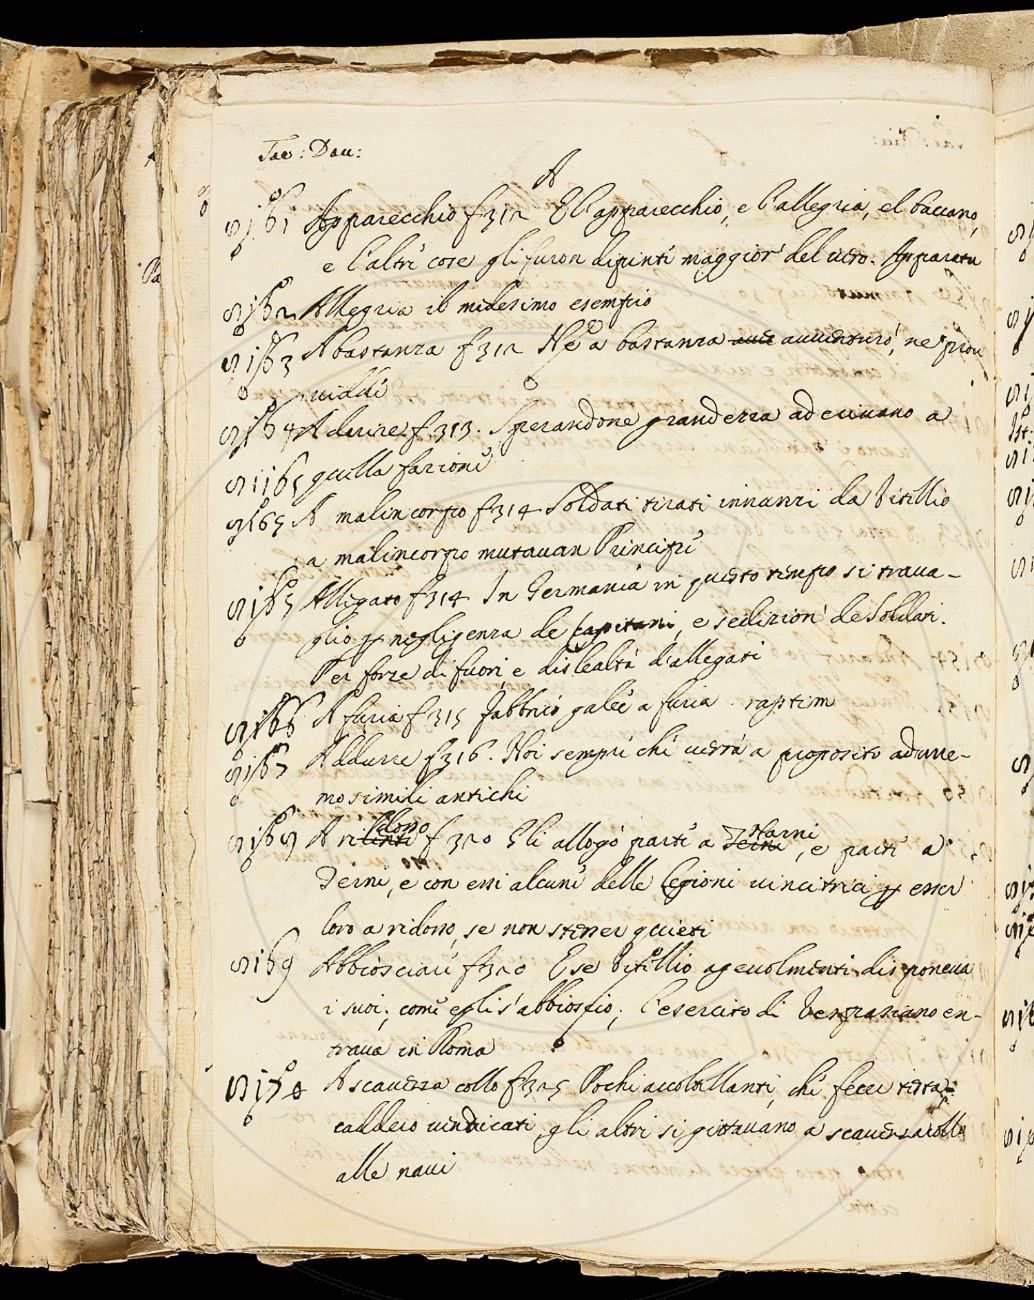 Tac: Dau:
A
S161 Apparecchio f 312 E l'apparecchio, e l'allegria, el baccano,
e l'altre cose gli furon dipinte maggior del uero. Apparatu
S162 Allegria il medesimo esempio
S163 Abastanza f 312 Ne a bastanza auuenturó, ne prou
uidde
S164 Adurre f 313. Sperandone grandezza aderiuano a
S1165 quella fazione
S165 A malincorpo f 314 Soldati tirati innanzi da Vitellio
a malincorpo mutauan Principe
S165 Allegato f 314 In Germania in questo tempo si traua-
glió negligenza de Capitani, e sedizion de Soldati.
Per forze di fuori e dislealtá d'allegati
S166 A furia f 315 fabbricó galée a furia raptim
S167 Addurre f 316. Noi sempre che uerrá a proposito addurre-
mo simili antichi
S168 A ridosso f 320 Gli allogó parte a Narni, e parte a
Terni, e con essi alcune delle legioni uincitrici esser
loro a ridosso, se non stesser quieti
S169 Abbiosciare f 320 E se Vitellio ageuolmente disponeua
i suoi; come egli s'abbioscio; l'esercito di Vespasiano en-
traua in Roma
S170 A scauezza collo f 325 Pochi accoltellanti, che fecer testa
caddero uindicati gli altri si gittauano a scauezzacollo
alle naui